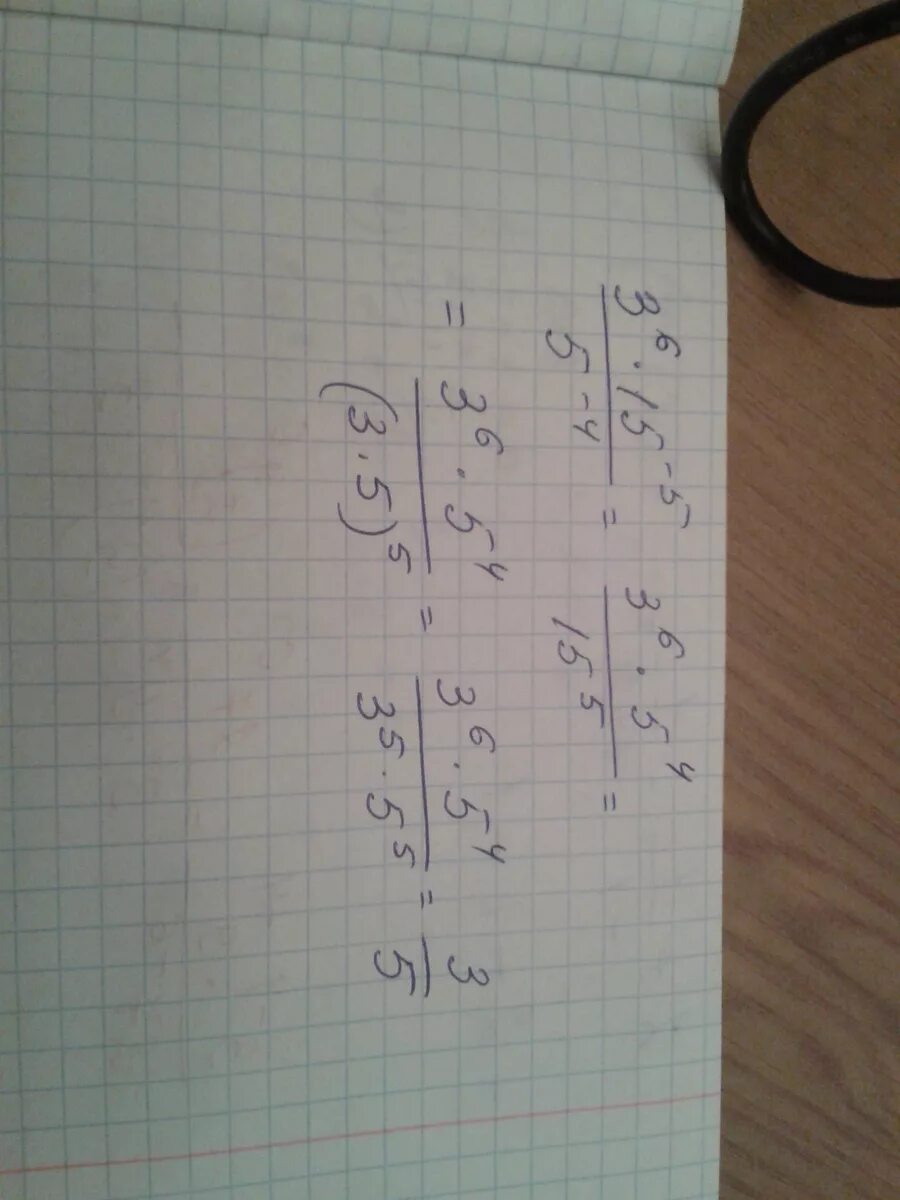 3⁶·15⁻⁵/5⁻⁴ = 3⁶·5⁴/15⁵ =
= 3⁶·5⁴/(3·5)⁵ = 3⁶·5⁴/3⁵·5⁵ = 3/5